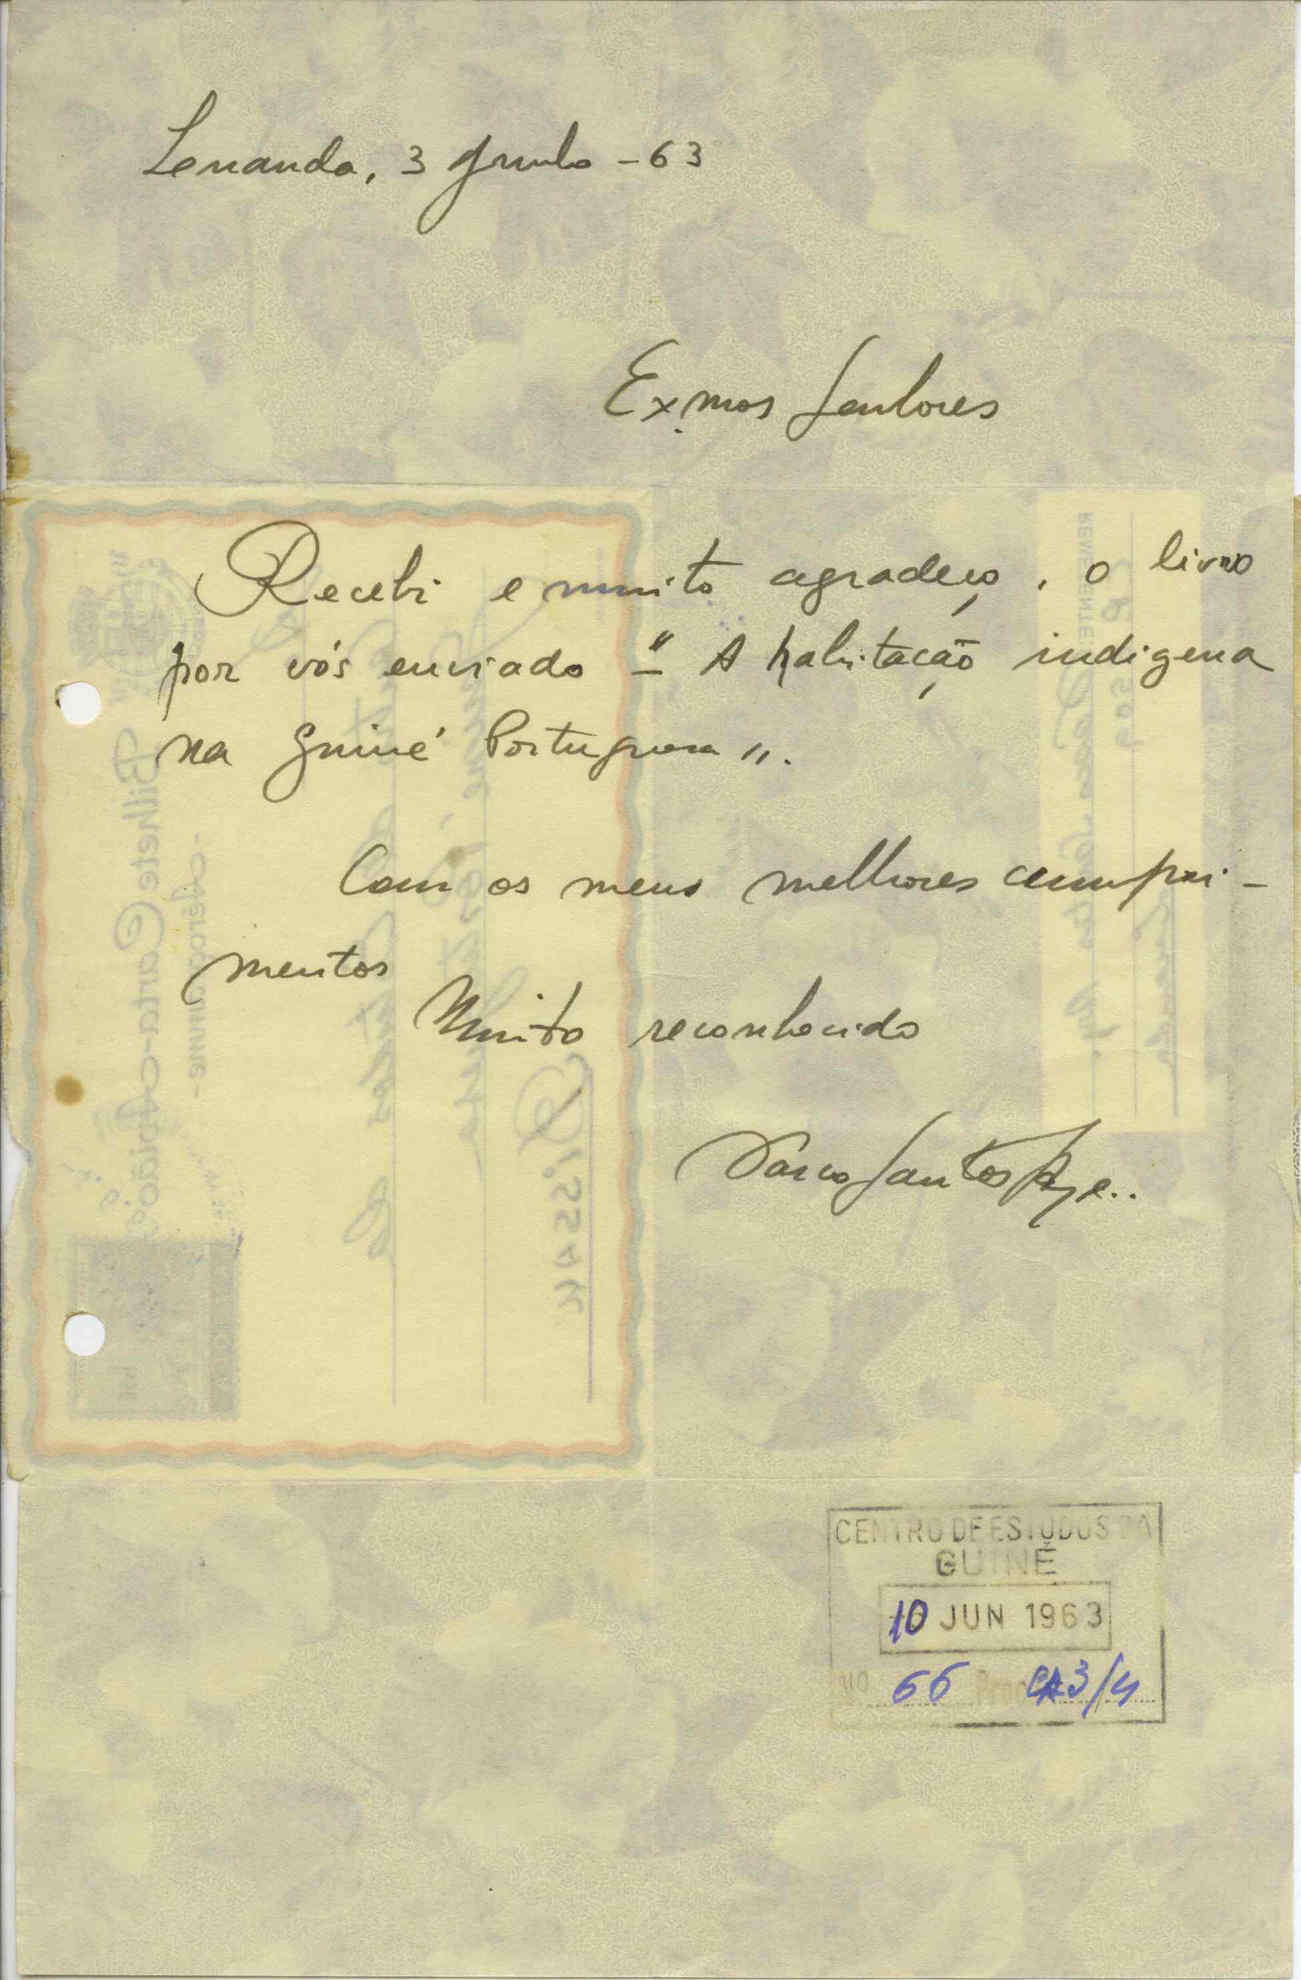 Luanda, 3 Junho - 63
Ex.mos Senhores
Recebi e muito agradeço, o livro
por vós enviado - " A habitação indigena
na Guiné Portuguesa ".
Com os meus melhores cumpri-
mentos
Muito reconhecido
Vasco Santos
CENTRO DE ESTUDOS DA
GUINÉ
10 JUN 1963
NO 66 Proc CA3/4
Bilhete Carta-Avião
BISSAU